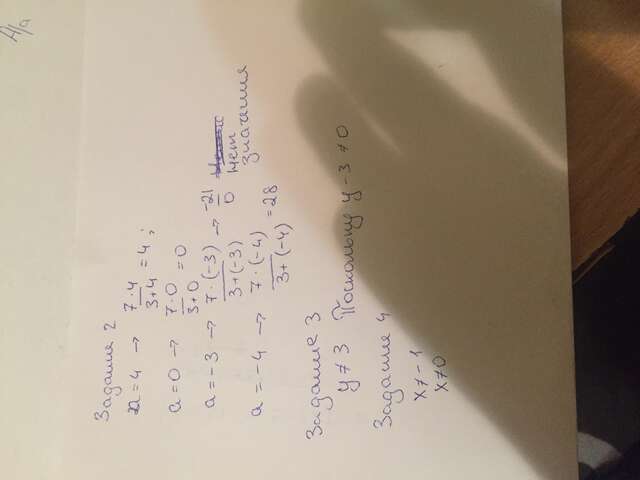 Д/а
Задание 2
a=4 → 7·4/3+4 = 4;
a=0 → 7·0/3+0 = 0
a=-3 → 7·(-3)/3+(-3) → -21/0 нет
значения
a=-4 → 7·(-4)/3+(-4) = 28
Задание 3
y≠3 Поскольку y-3≠0
Задание 4
x≠-1
x≠0